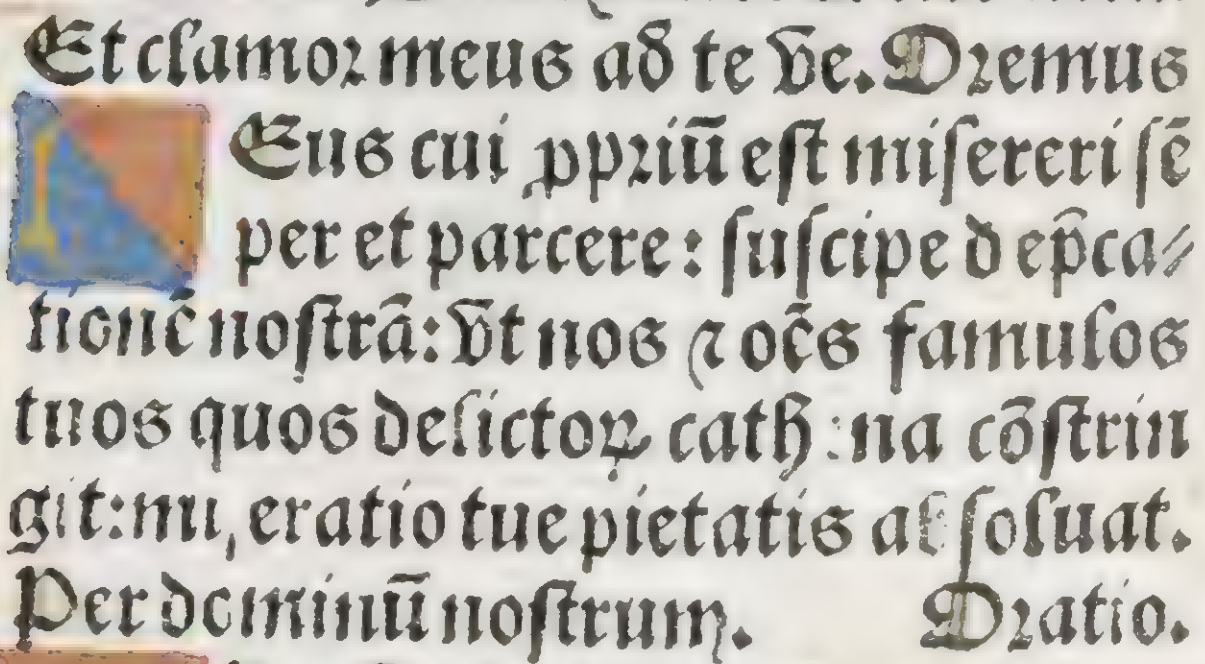 Et clamor meus ad te ve. Oremus
Eus cui ꝓpriū est misereri sē
per et parcere: suscipe dep̄ca⸗
tionē nostrā: vt nos ⁊ oēs famulos
tuos quos delictoꝝ cathena cōstrin
git: eratio tue pietatis absoluat.
Per dominū nostrum. Oratio.